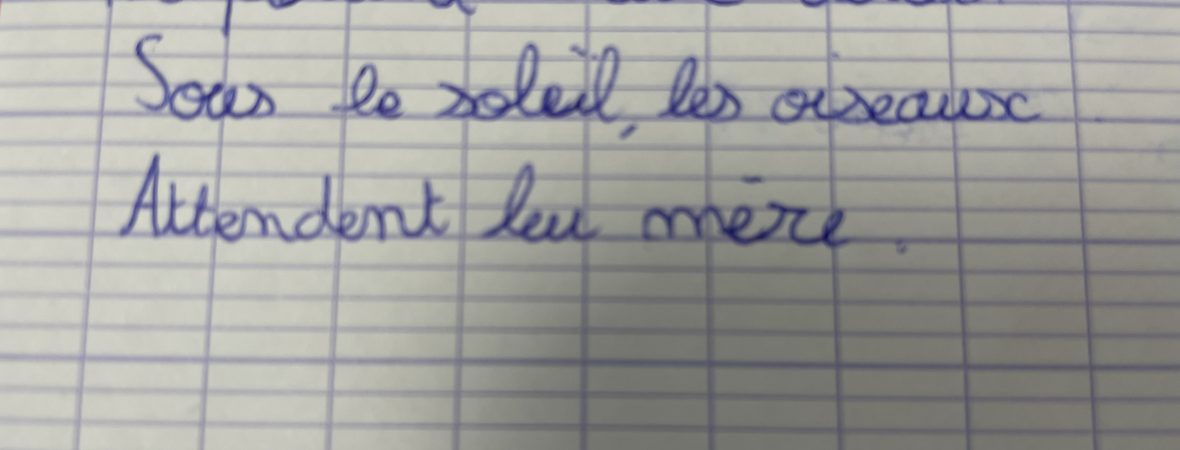 Sous le soleil, les oiseaux
Attendent leu mère.